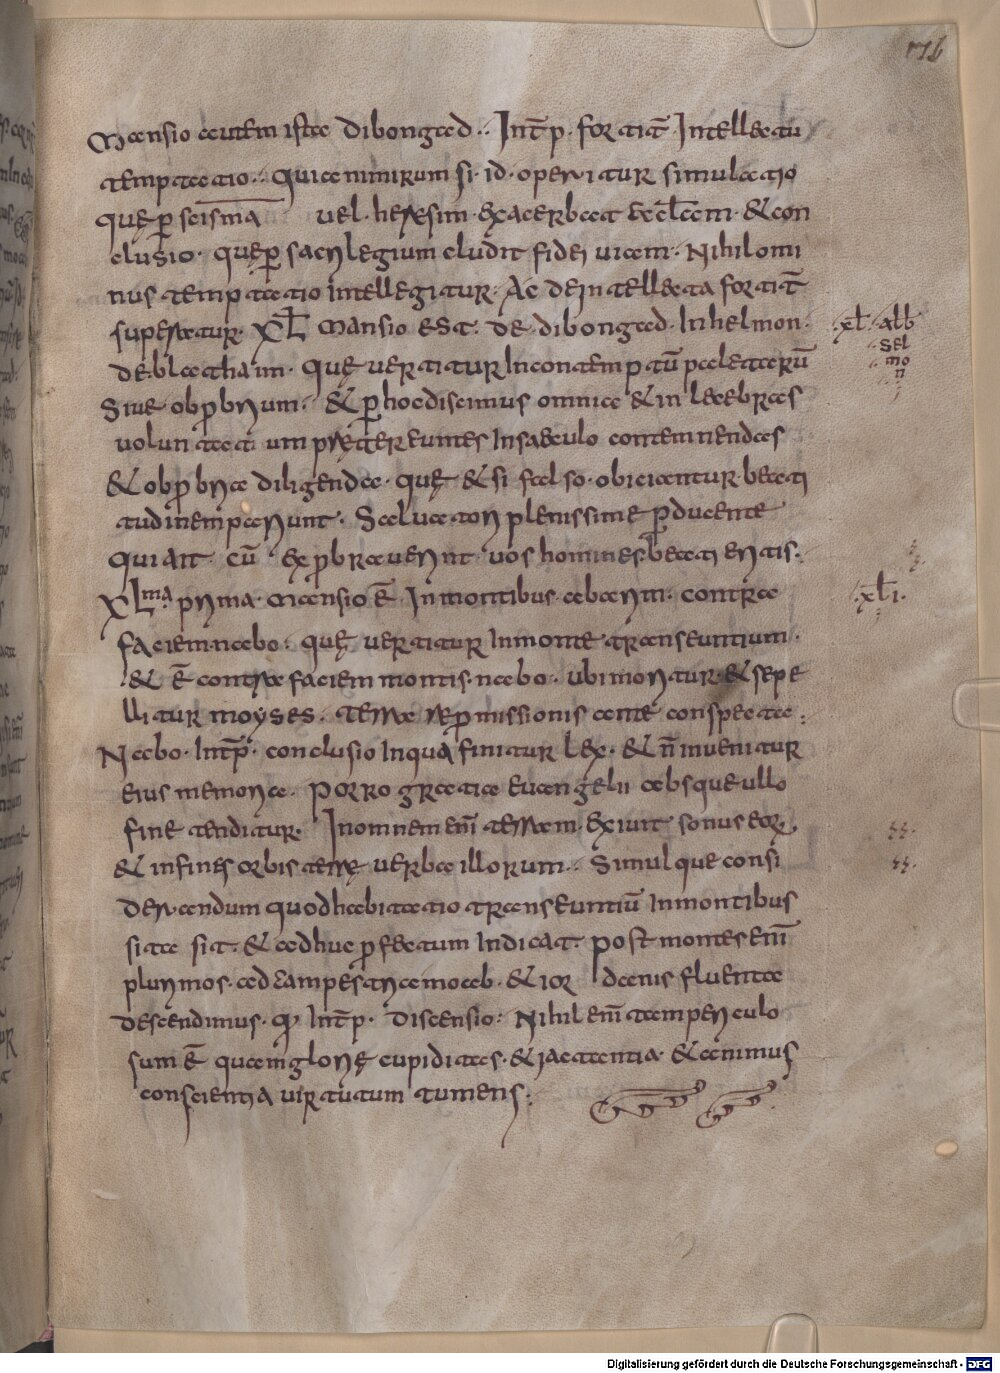 176
Mansio autem ista dibongad·· Int̄p· fortit̄ Intellecta
temptatio·· Quia nimirum si· id· operitur simulatio
que ꝑ scisma uel· heresim· exacerbat eccl̄am· & con
clusio· queꝑ sacrilegium cludit fidei uicem· Nihilomi
nus temptatio intellegitur· Ac deintellecta fortit̄
superatur· XL̄ mansio est· de· dibongad· Inhelmon·
deblathaim· Quę uertitur Incontemptū palatarū
Siue obꝓbrium· & ꝑ hoc discimus omnia & inlecebras
uoluntatum pręter euntes Insaeculo contemnendas
& obꝓbria diligenda· quę & si falso· obiciantur· beati
tudinem parunt· Saluatori plenissime ꝓducente
Qui ait· cū exꝓbrauerint uos homines· beati eritis·
XLma prima· Mansio ē Inmontibus· abarim· contra
faciem·nabo· quę uertitur Inmonte transeuntium·
& ē contra faciem montis·nabo· ubi moritur & sepe
llitur moyses· terra repromissionis ante conspecta·
Nabo· Int̄p· conclusio Inqua finitur lex· & n̄ inuenitur
eius memoria· Porro gratia euangelii absque ullo
fine tenditur· Inomnem eni terram· exiuit sonus eoꝝ
& infines orbis terrę uerba illorum·· Simulque consi
derandum quod habitatio transeuntiū Inmontibus
sita sit· & adhuc ꝓfectum Indicat· post montes eni
plurimos· ad campestria moab· & ior danis fluenta
descendimus· qđ Int̄p· discensio· Nihil eni tam periculo
sum ē quam glorię cupiditas· & iactantia· & animus
conscientia uirtutum tumens·
·xl̄· alb
sel
mo
n
·xl̄i·
Digitalisierung gefördert durch die Deutsche Forschungsgemeinschaft - DFG